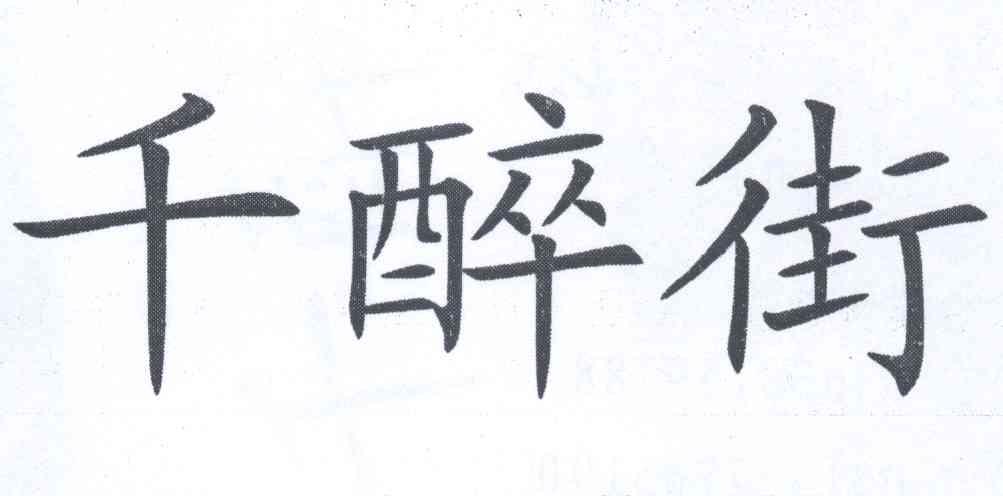 千醉街